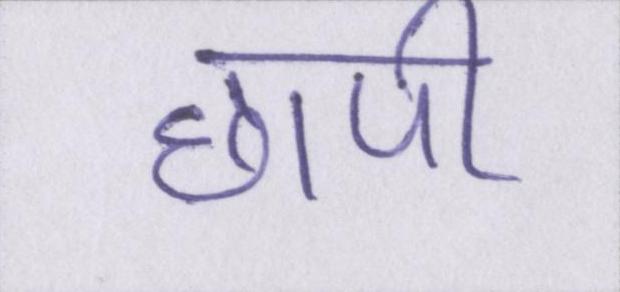 छापी